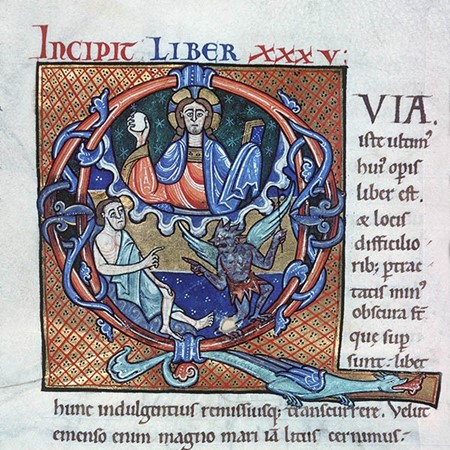 INCIPIT LIBER XXXV:
QVIA.
iste ultim᾽
hui᾽ op̲is
liber est.
& locis
difficilio
rib; p̲trac
tatis min᾽
obscura st̄
que sup̲
sunt. libet
hunc indulgentius remissiusq; transcurrere. Velut
emenso enim magno mari iā litus cernimus.